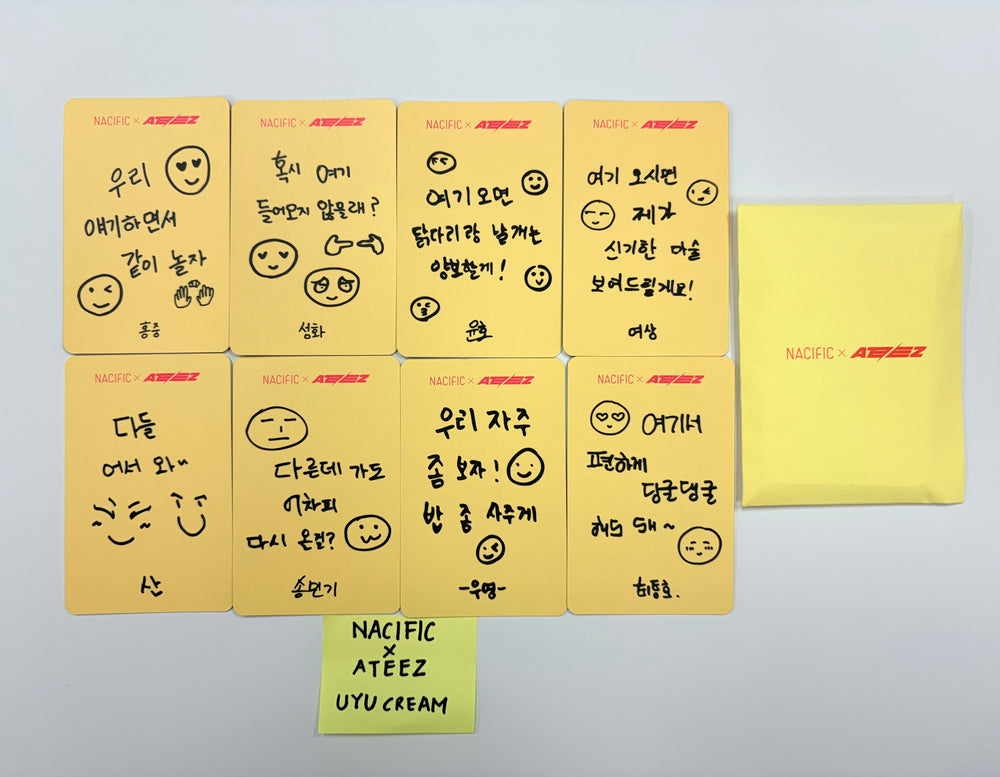 NACIFIC × ATEEZ
우리
얘기하면서
같이 놀자
홍중
NACIFIC × ATEEZ
혹시 여기
들어오지 않을래?
성화
NACIFIC × ATEEZ
여기 오면
닭다리랑 날개는
양보할게!
윤호
NACIFIC × ATEEZ
여기 오시면
제가
신기한 마술
보여드릴게요!
여상
NACIFIC × ATEEZ
다들
어서 와~
산
NACIFIC × ATEEZ
다른데 가도
어차피
다시 온걸?
송민기
NACIFIC × ATEEZ
우리 자주
좀 보자!
밥 좀 사주게
-우영-
NACIFIC × ATEEZ
여기서
편하게
딩굴댕굴
해도 돼~
최종호.
NACIFIC × ATEEZ
NACIFIC
×
ATEEZ
UYU CREAM